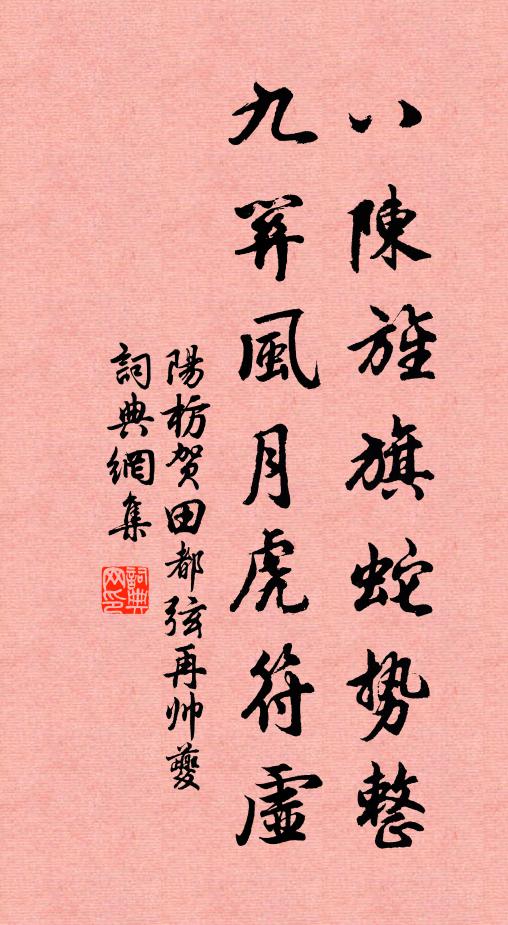 八陳旌旗蛇势整
九霄風月虎符虛
陽枋贺田都弦再帅夔
詞典網集
詞典网印